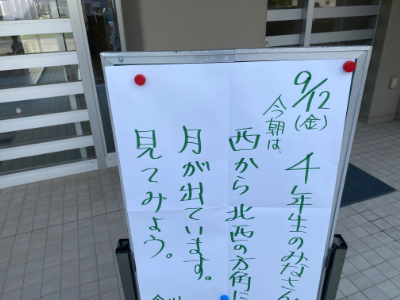 9/12
(金)
今朝は、
4年生のみなさん
西から北西の方角に
月が出ています。
見てみよう。